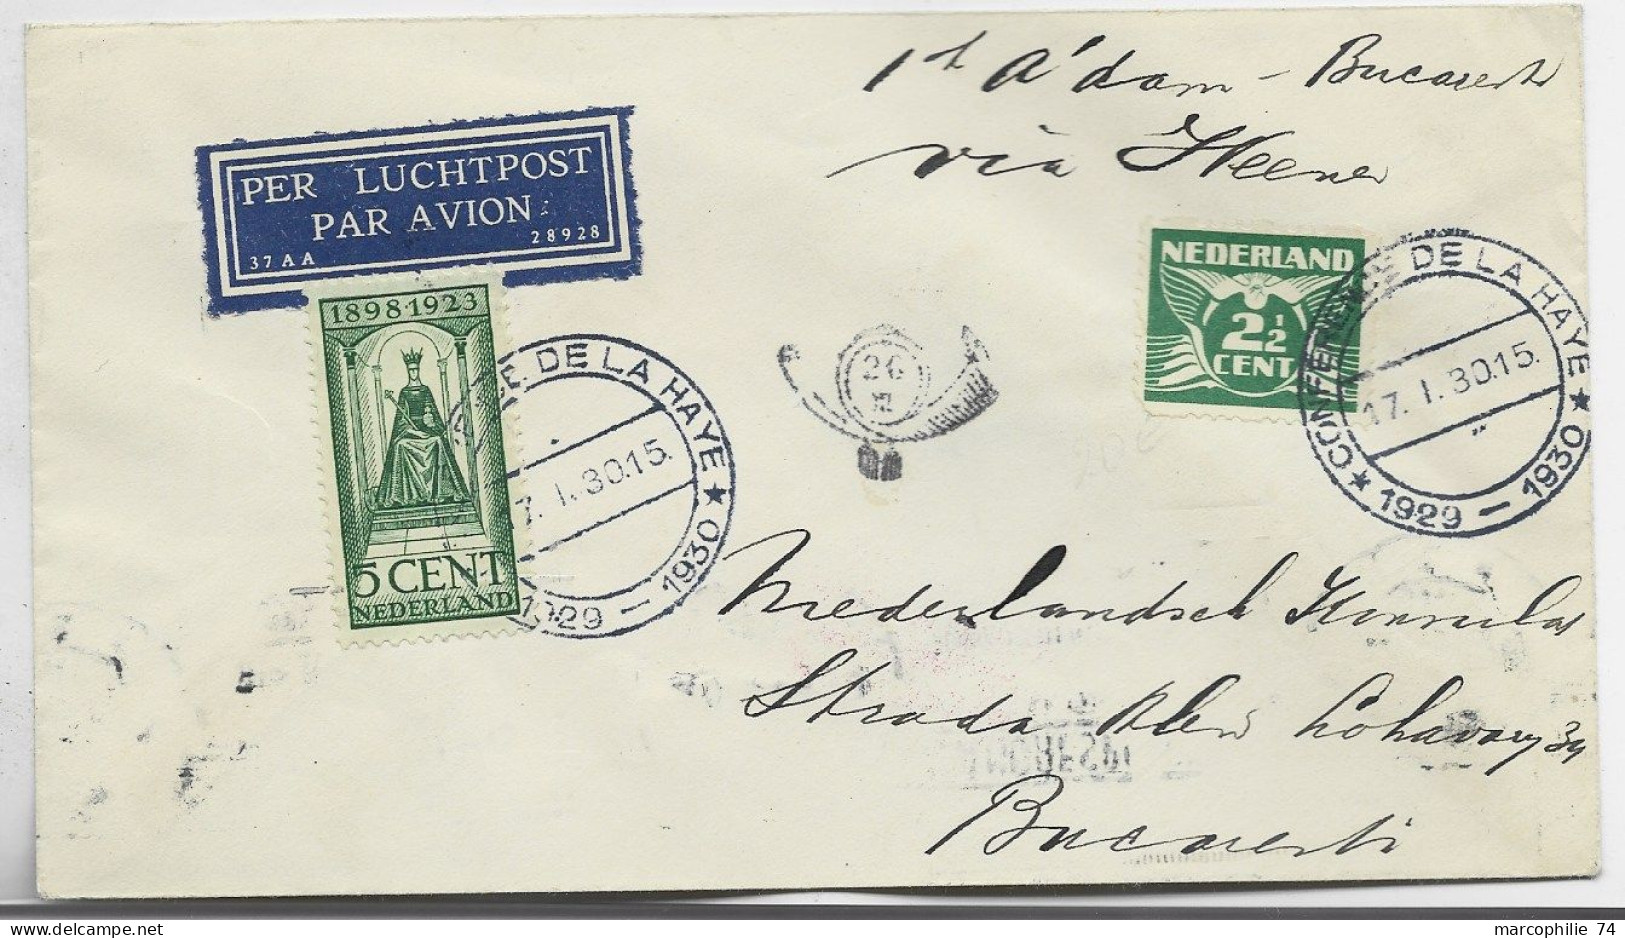 1st A'dam - Bucarest
via Weenen
PER LUCHTPOST
PAR AVION
37 AA 28928
NEDERLAND
2½
CENT
CONFERENCE DE LA HAYE
17. I. 30.15.
1929 - 1930
1898·1923
5 CENT
NEDERLAND
DE LA HAYE
17. I. 30.15.
1929 - 1930
26
Nederlandsch Konsulaat
Strada Alex Lahovary 34
Bucaresti
marcophilie 74